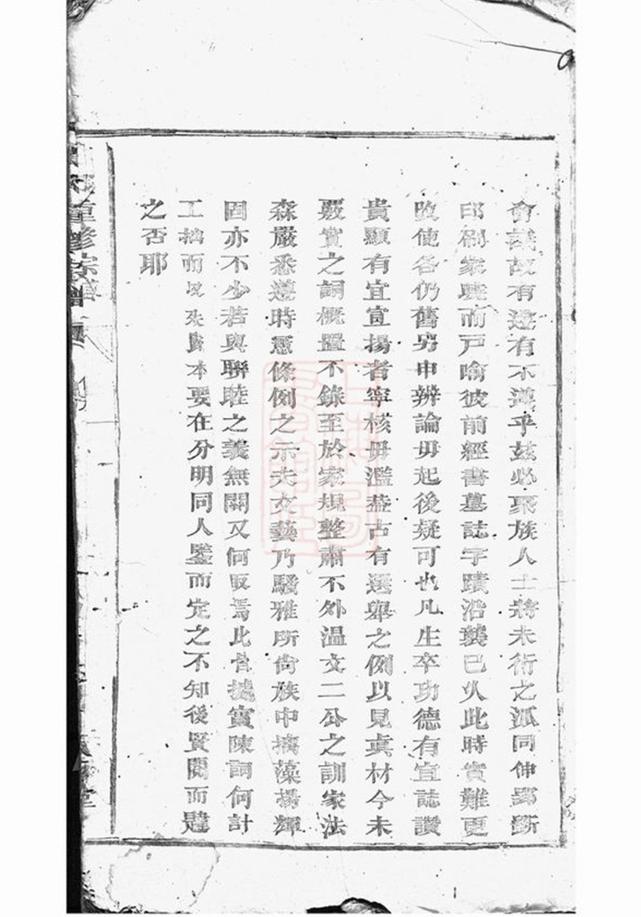 會議故有遵有不遵乎茲必聚族人士將未術之派同伸鄙斷
印刷家曉而戶喻彼前經書墓誌字蹟沿襲已久此時實難更
改使各仍舊另申辨論毋起後疑可也凡生卒功德有宜誌讚
貴顯有宜宣揚者寧核毋濫蓋古有選舉之例以見真材今未
覈實之詞概置不錄至於家規整肅不外溫文二公之訓家法
森嚴悉遵時憲條例之示夫文藝乃騷雅所尚族中摛藻揚輝
固亦不少若與聯睦之義無關又何取焉此皆據實陳詞何計
工拙而失本要在分明同人鑒而定之不知後賢閱而韙
之否耶
重修宗譜
堂